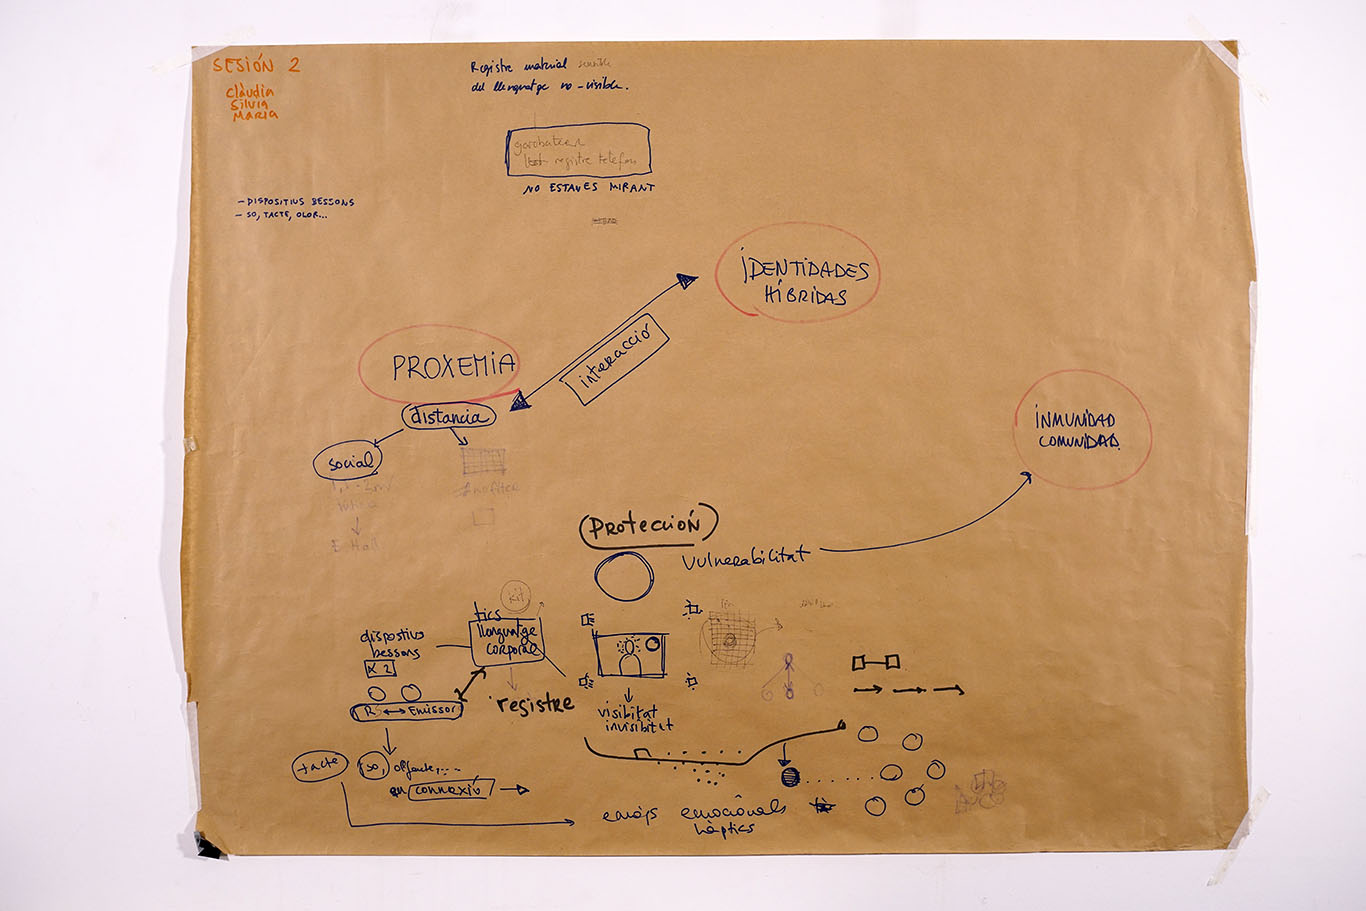 SESIÓN 2
Clàudia
Silvia
MARIA
Registre material sensible
del llenguatge no-visible.
garabatear
registre telèfon
NO ESTAVES MIRANT
- DISPOSITIUS BESSONS
- SO, TACTE, OLOR...
IDENTIDADES
HÍBRIDAS
PROXEMIA
interacció
distancia
social
INMUNIDAD
COMUNIDAD.
E. Hall
PROTECCIÓN
Vulnerabilitat
Kit
tics
llenguatge
corporal
dispostius
bessons
K2
registre
Emissor
visibilitat
invisibilitat
tacte
so, olfacte,...
en connexió
emojs emocionals
hàptics